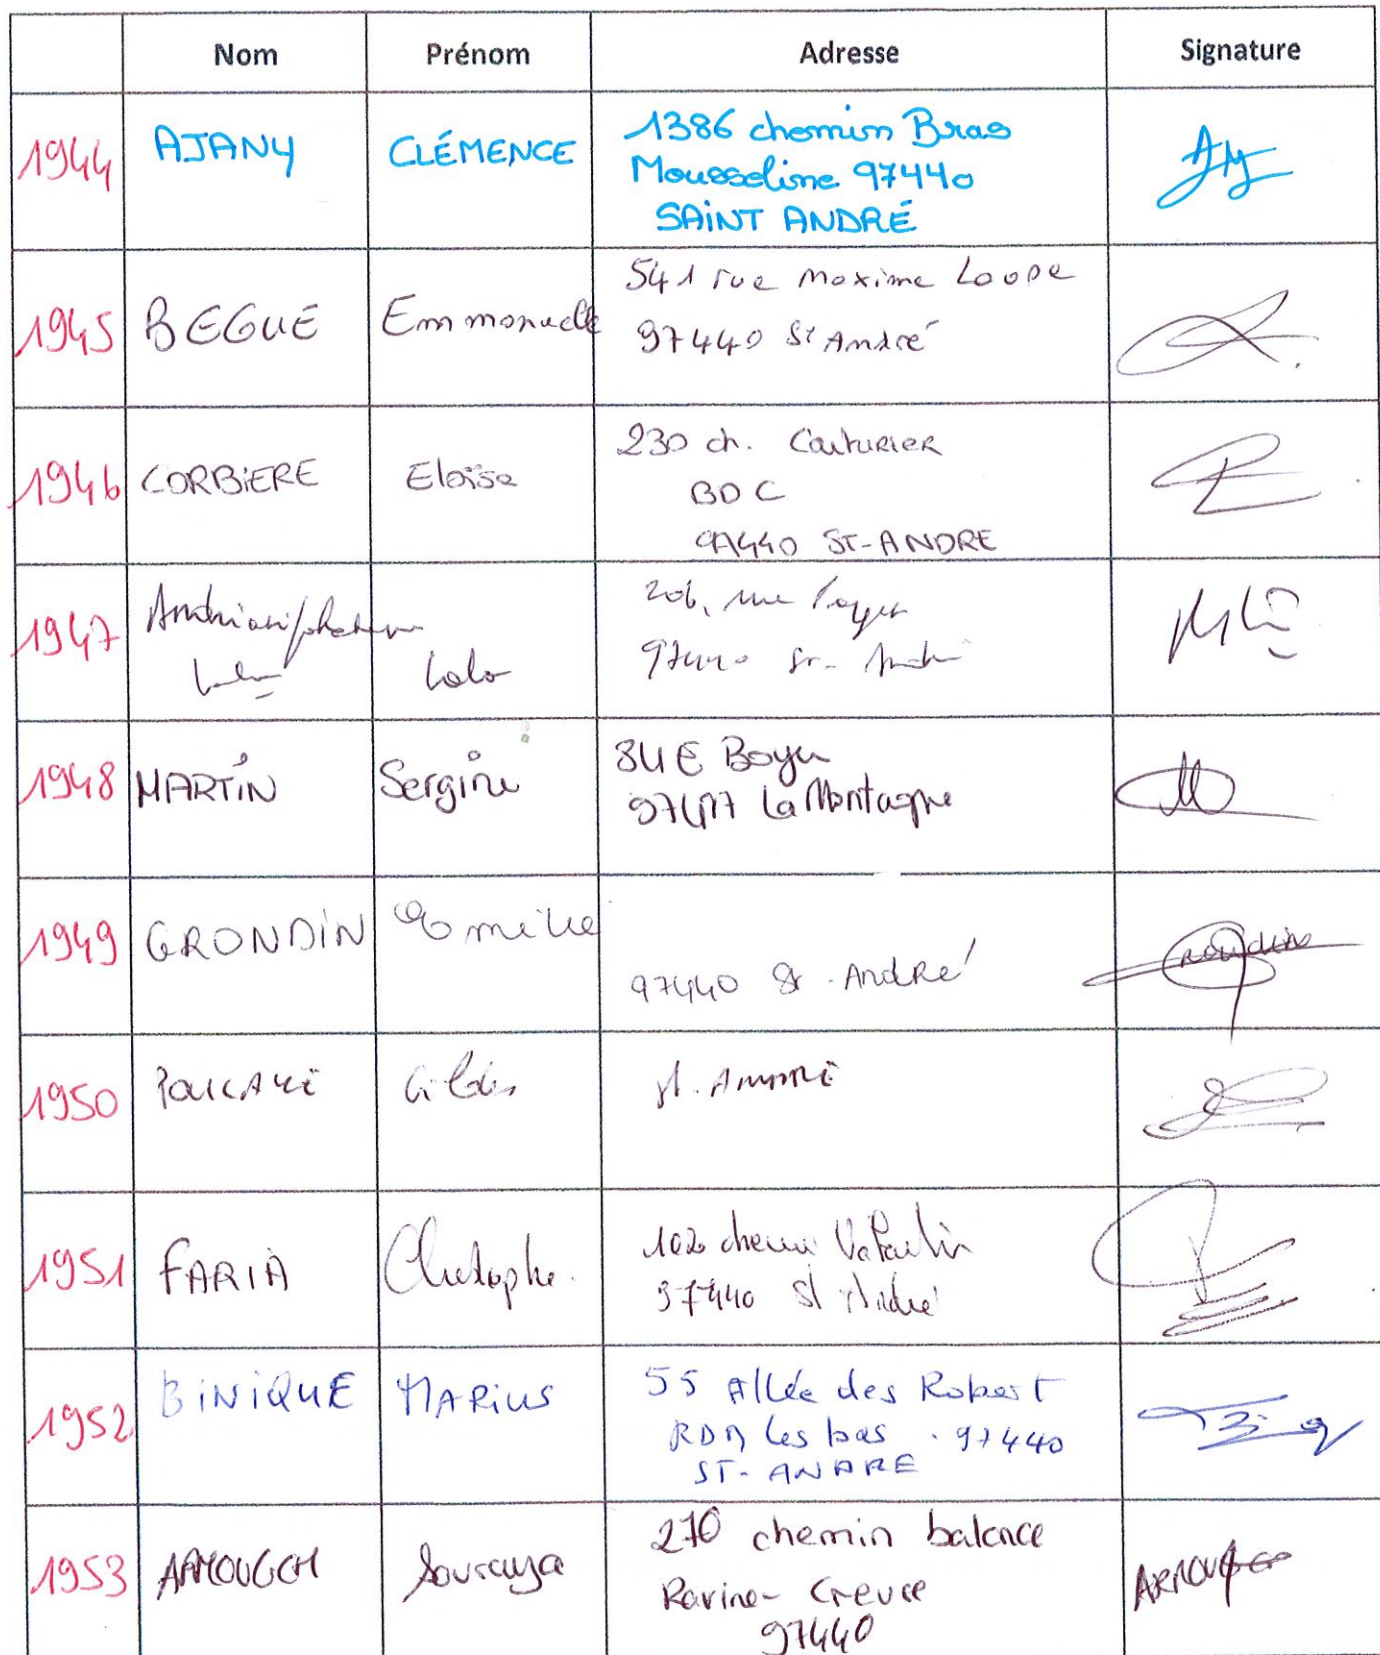 Nom Prénom Adresse Signature
1944 AJANY CLÉMENCE 1386 chemin Bras
Mousseline 97440
SAINT ANDRÉ
1945 BEGUE Emmanuelle 541 rue Maxime Loope
97440 St André
1946 CORBIERE Eloïse 230 ch. Couturier
BDC
97440 ST-ANDRE
1947 206, rue
Lala 97440 St-André
1948 MARTIN Sergine 34 E Boyer
97417 La Montagne
1949 GRONDIN Emilie
97440 St-André
1950 St. ANDRE
1951 FARIA Christophe 102 chemin Valentin
97440 St André
1952 BINIQUE MARIUS 55 Allée des Robert
RDM les bas. 97440
ST-ANDRE
1953 Souraya 270 chemin balance
Ravine-Creuse
97440